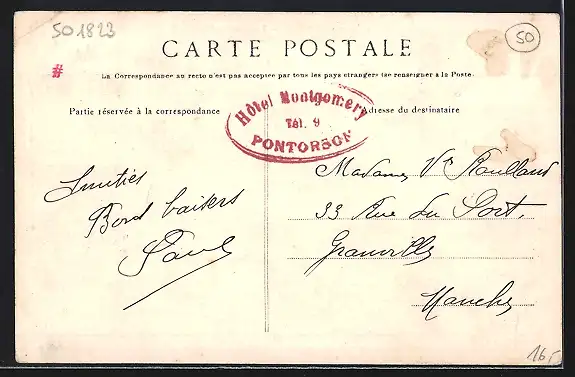 501823
50
CARTE POSTALE
#
La Correspondance au recto n'est pas acceptée par tous les pays étrangers (se renseigner à la Poste)
Partie réservée à la correspondance
Adresse du destinataire
Hôtel Montgomery
Tél. 9
PONTORSON
Amitiés
Bons baisers
Paul
Madame Vve Roulland
33 Rue du Port,
Granville
Manche
16